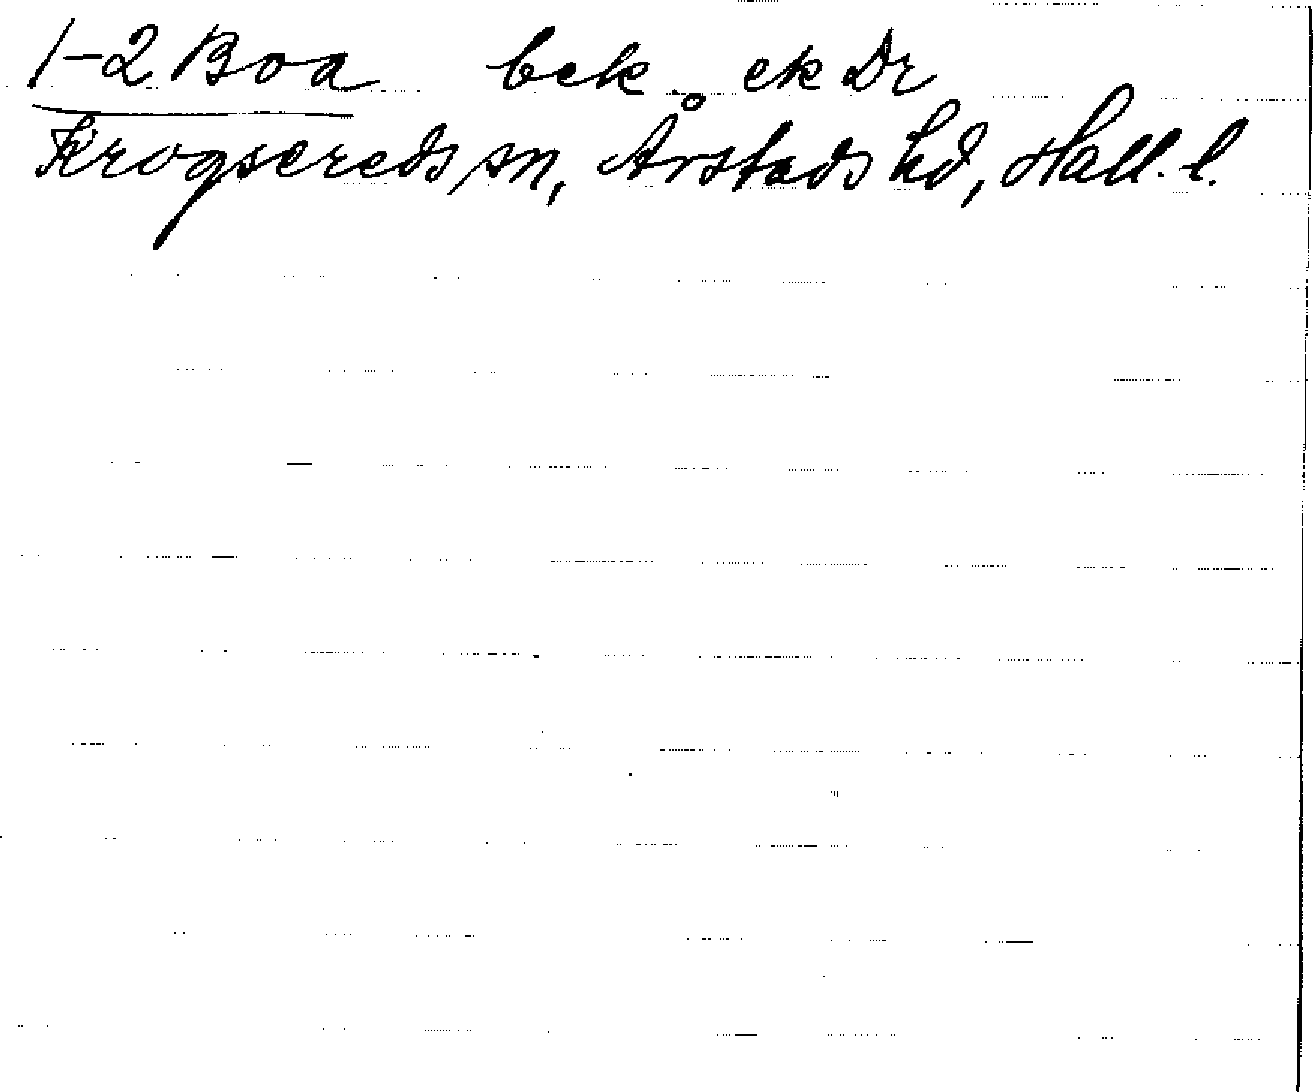 1-2 Boa bek. ek Dr
Krogsereds sn, Årstads hd, Hall. l.